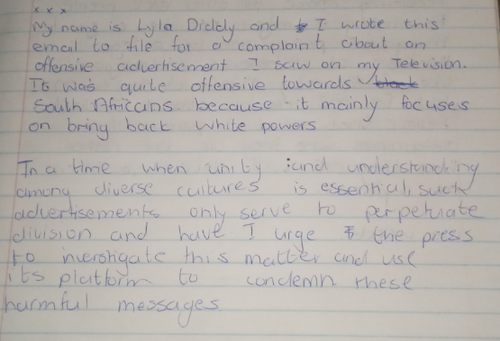 x x x
My name is Lyla Diddy and I wrote this
email to file for a complaint about an
offensive advertisement I saw on my television.
It was quite offensive towards black
South Africans because it mainly focuses
on bring back white powers
In a time when unity and understanding
among diverse cultures is essential, such
advertisements only serve to perpetuate
division and have I urge the press
to inverstigate this matter and use
its platform to condemn these
harmful messages